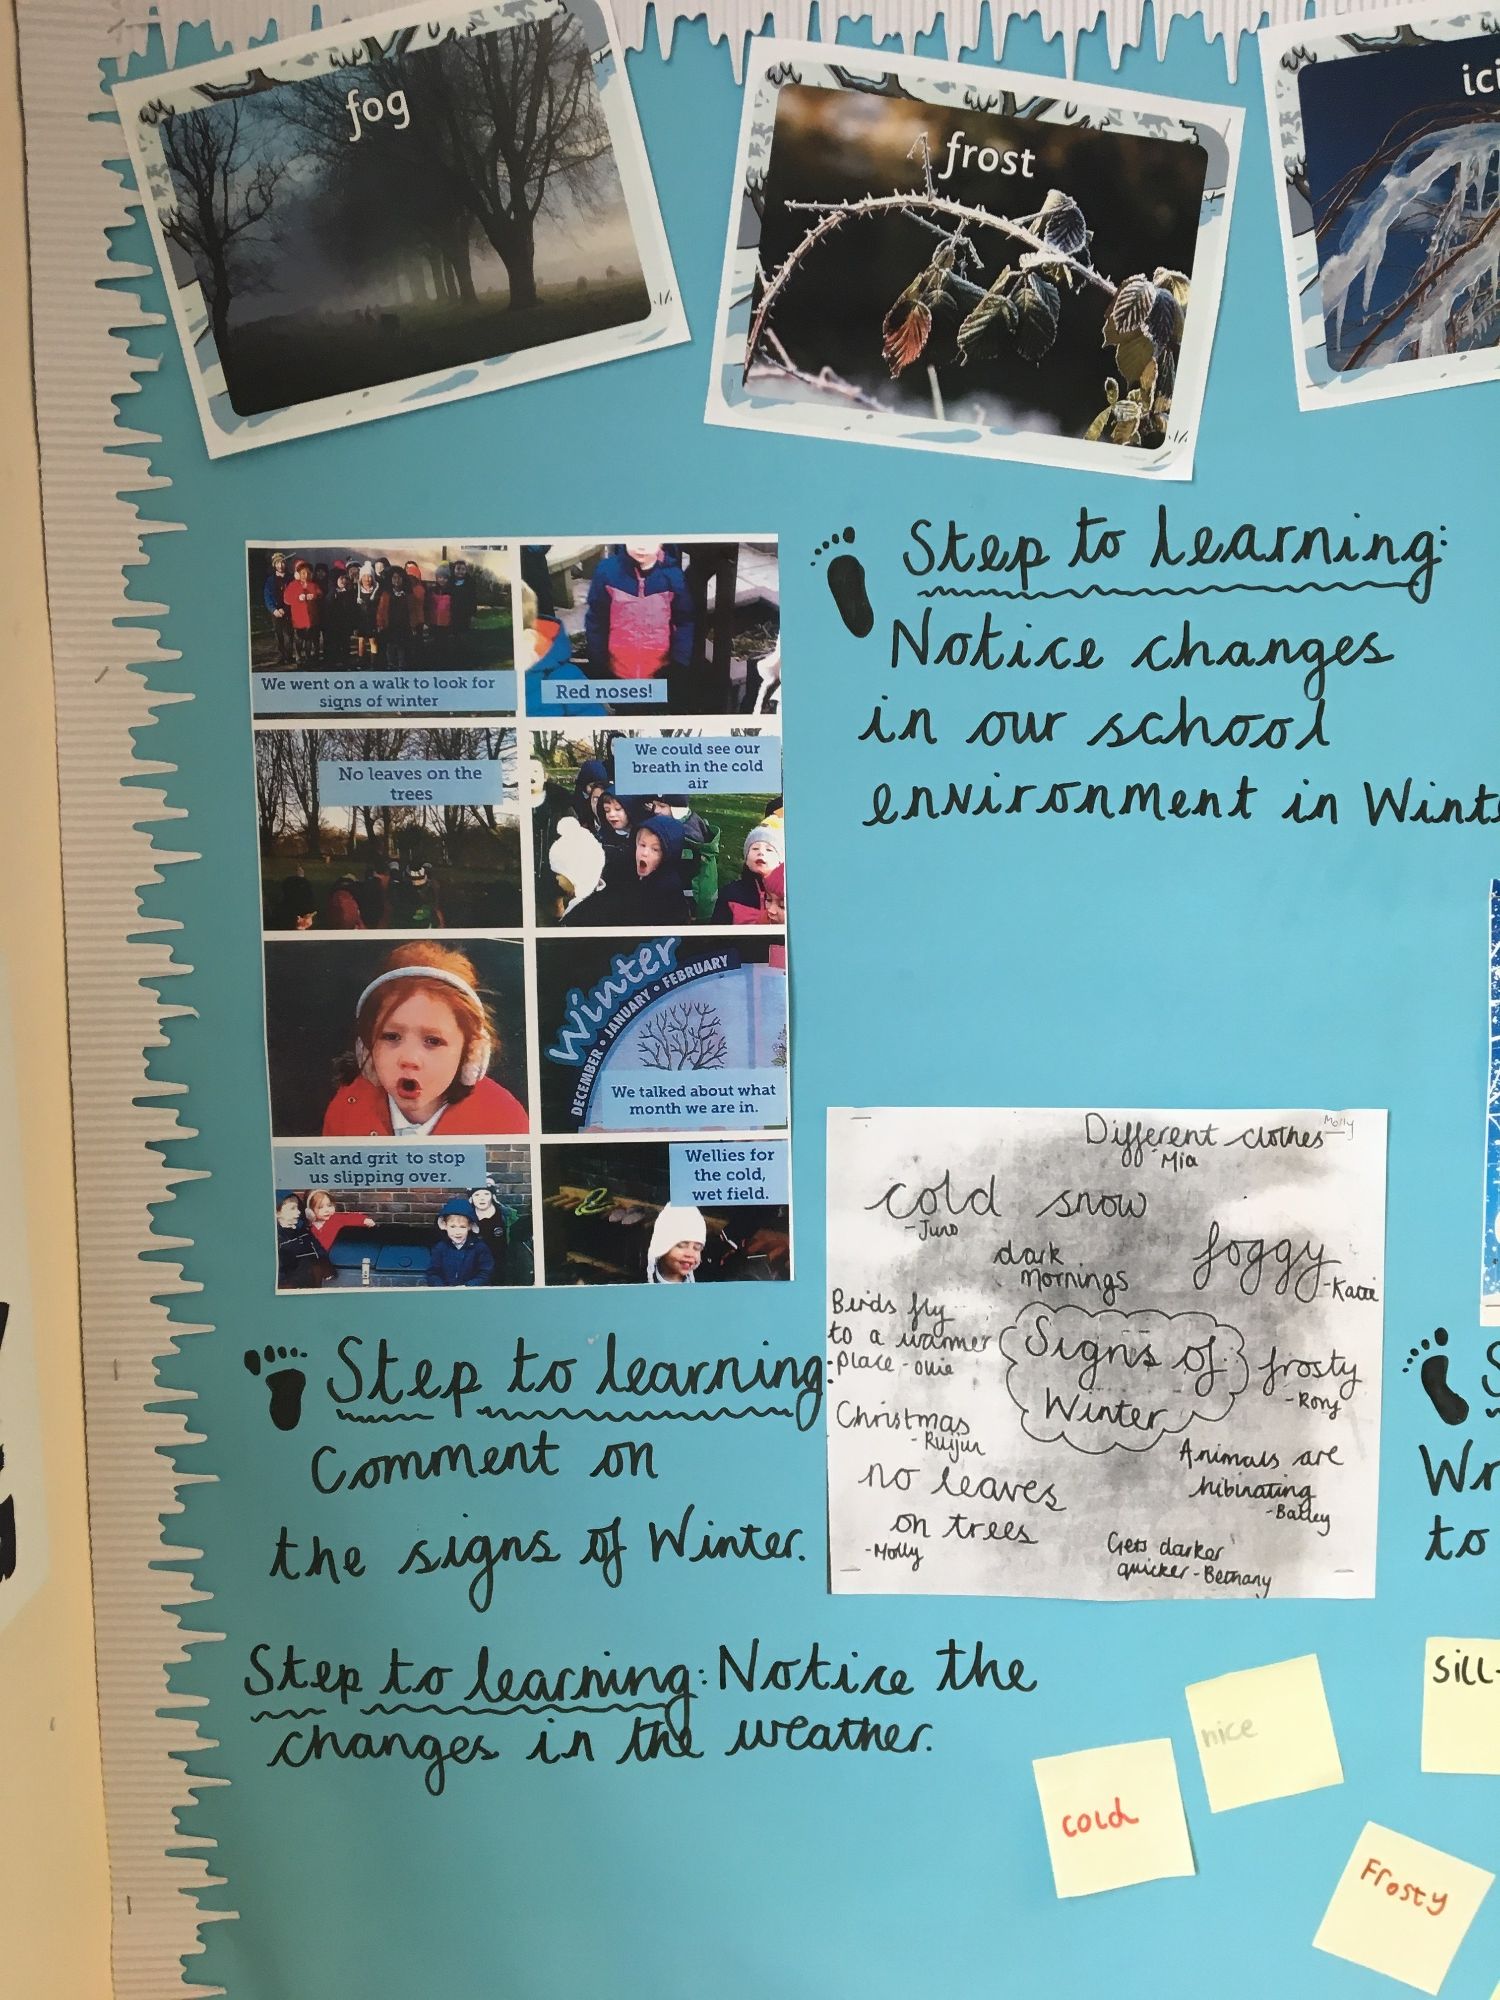 fog
frost
Step to learning:
Notice changes
in our school
environment in
We went on a walk to look for
signs of winter
Red noses!
No leaves on the
trees
We could see our
breath in the cold
air
Winter
DECEMBER • JANUARY • FEBRUARY
We talked about what
month we are in.
Salt and grit to stop
us slipping over.
Wellies for
the cold,
wet field.
Different clothes
Molly
- Mia
cold
- Juno
snow
dark
mornings
foggy
- Katie
Birds fly
to a warmer
place - Ollie
Signs of
Winter
frosty
- Rory
Christmas
- Ruijun
Animals are
hibinating
- Bailey
no leaves
on trees
- Molly
Gets darker
quicker - Bethany
Step to learning:
Comment on
the signs of Winter.
Step to learning: Notice the
changes in the weather.
to
nice
cold
Frosty